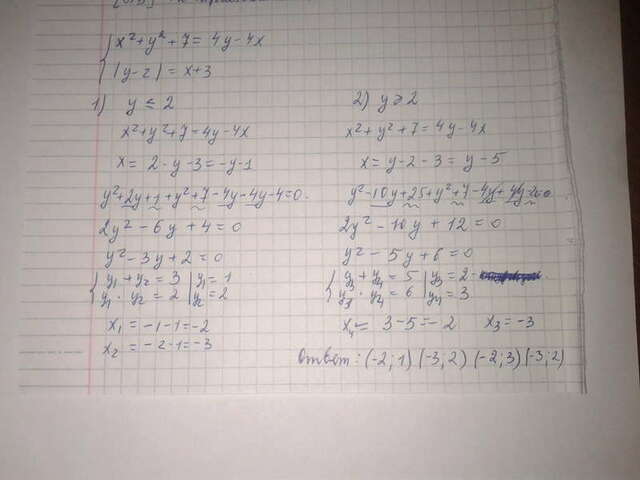 x² + y² + 7 = 4y - 4x
|y - 2| = x + 3
1) y ≤ 2
x² + y² + 7 = 4y - 4x
x = 2 - y - 3 = -y - 1
y² + 2y + 1 + y² + 7 - 4y - 4y - 4 = 0.
2y² - 6y + 4 = 0
y² - 3y + 2 = 0
y₁ + y₂ = 3 | y₁ = 1
y₁ · y₂ = 2 | y₂ = 2
x₁ = -1 - 1 = -2
x₂ = -2 - 1 = -3
2) y ≥ 2
x² + y² + 7 = 4y - 4x
x = y - 2 - 3 = y - 5
y² - 10y + 25 + y² + 7 - 4y + 4y
2y² - 10y + 12 = 0
y² - 5y + 6 = 0
y₃ + y₄ = 5 | y₃ = 2
y₃ · y₄ = 6 | y₄ = 3
x₄ = 3 - 5 = -2 x₃ = -3
ответ: (-2; 1) (-3; 2) (-2; 3) (-3; 2)